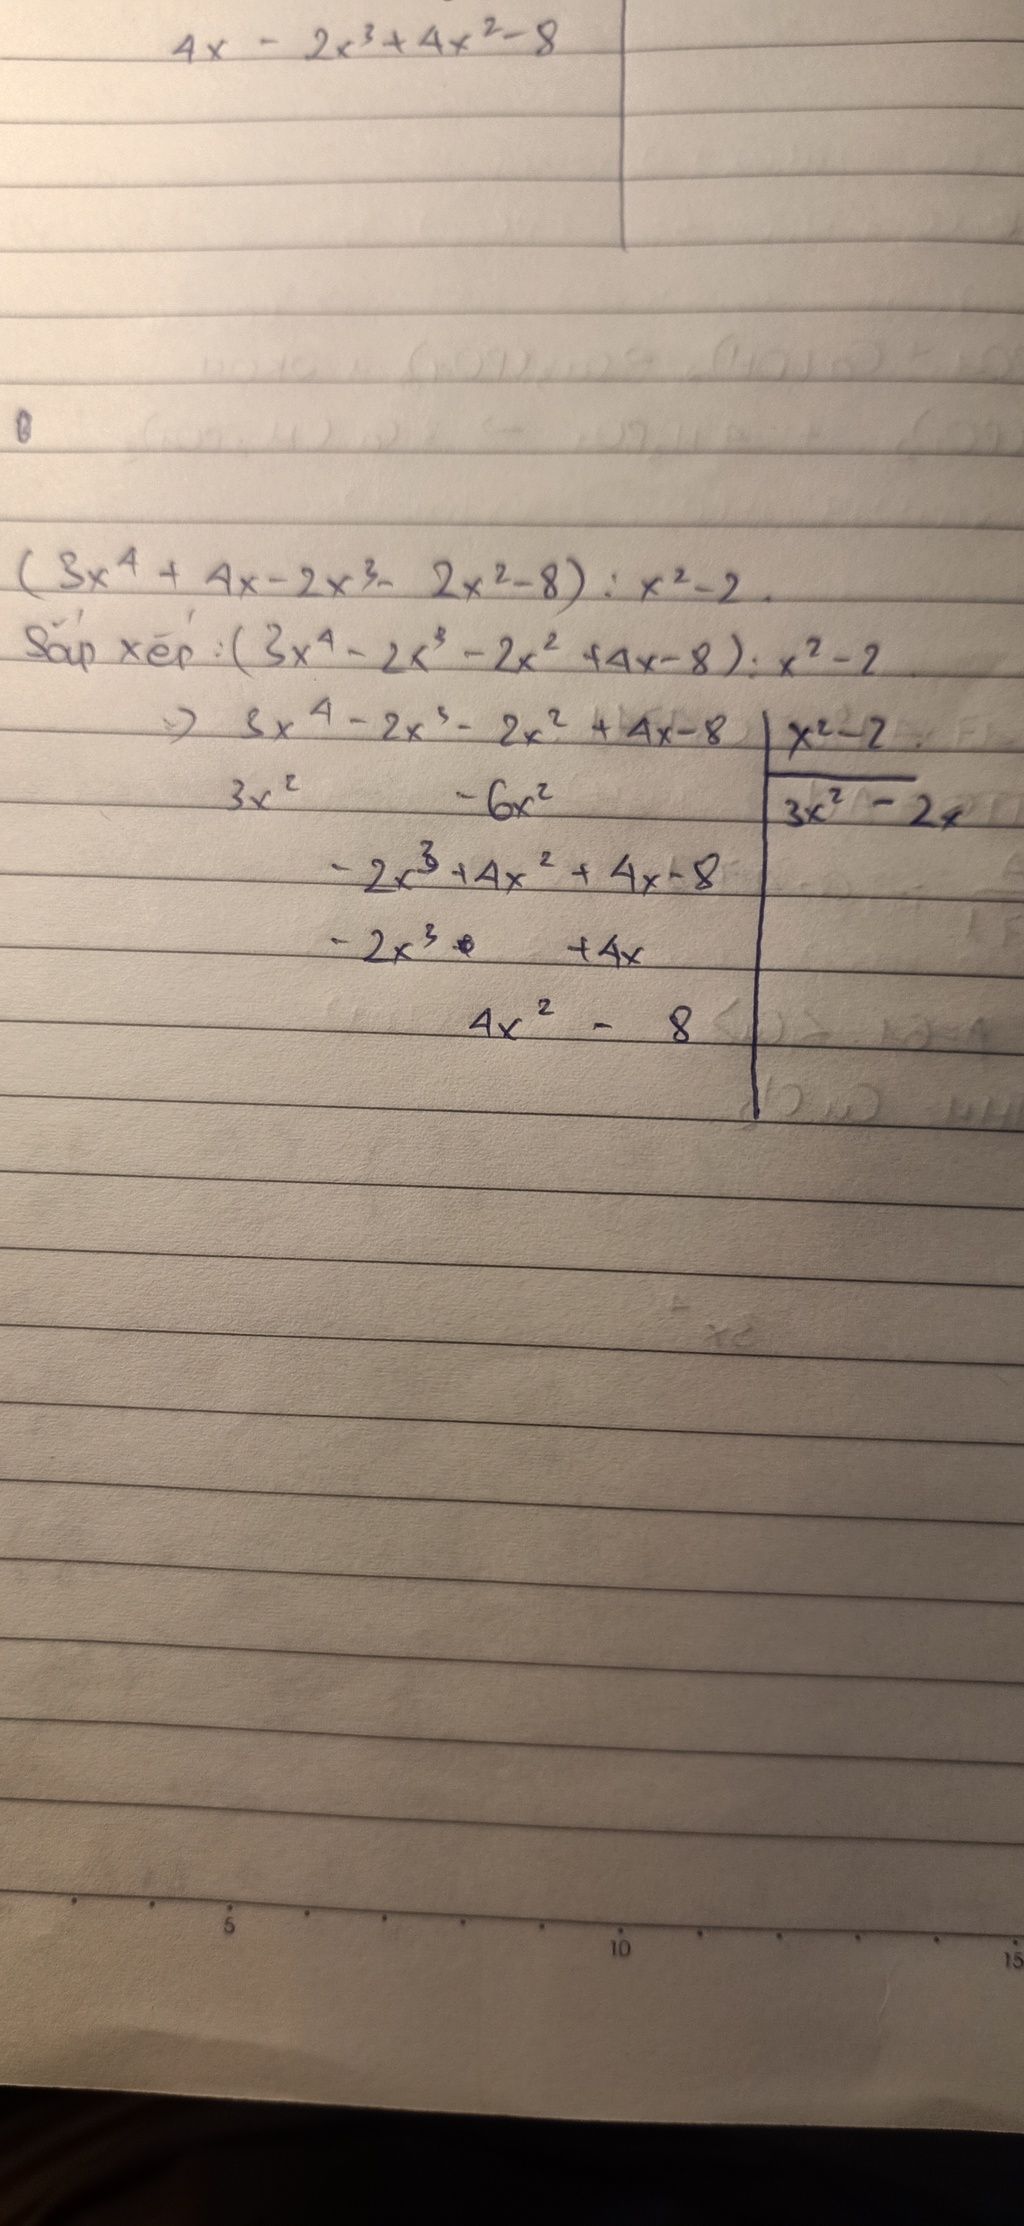 4x - 2x³ + 4x² - 8
(3x⁴ + 4x - 2x³ - 2x² - 8) : x² - 2.
Sắp xếp : (3x⁴ - 2x³ - 2x² + 4x - 8) : x² - 2
=> 3x⁴ - 2x³ - 2x² + 4x - 8 | x² - 2
3x² - 6x² | 3x² - 2x
- 2x³ + 4x² + 4x - 8
- 2x³ + 4x
4x² - 8
5 10 15